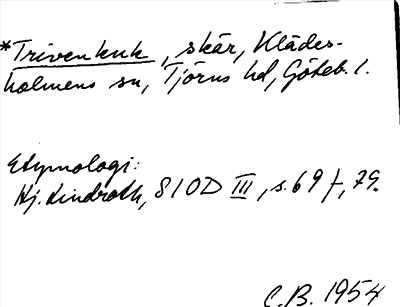 *Trivenkuk, skär, Klädes-
holmens sn, Tjörns hd, Göteb. l.
Etymologi:
Hj. Lindroth, SIOD III, s. 69 f, 79.
C.B. 1954